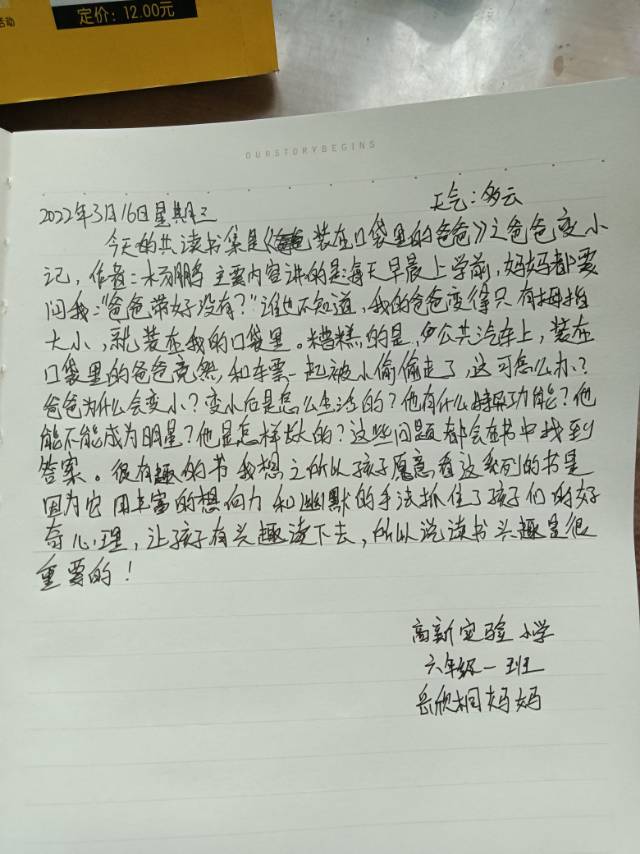 定价：12.00元
活动
OURSTORYBEGINS
2022年3月16日星期三 天气：多云
今天的共读书集是《装在口袋里的爸爸》之爸爸变小
记，作者：杨鹏 主要内容讲的是：每天早晨上学前，妈妈都要
问我："爸爸带好没有？"谁也不知道，我的爸爸变得只有拇指
大小，就装在我的口袋里。糟糕的是，公共汽车上，装在
口袋里的爸爸竟然和车票一起被小偷偷走了，这可怎么办？
爸爸为什么会变小？变小后是怎么生活的？他有什么特异功能？他
能不能成为明星？他是怎样长大的？这些问题都会在书中找到
答案。很有趣的书 我想之所以孩子愿意看这系列的书是
因为它用丰富的想向力和幽默的手法抓住了孩子们的好
奇心理，让孩子有兴趣读下去，所以说读书兴趣是很
重要的！
高新实验小学
六年级一班
岳欣桐妈妈